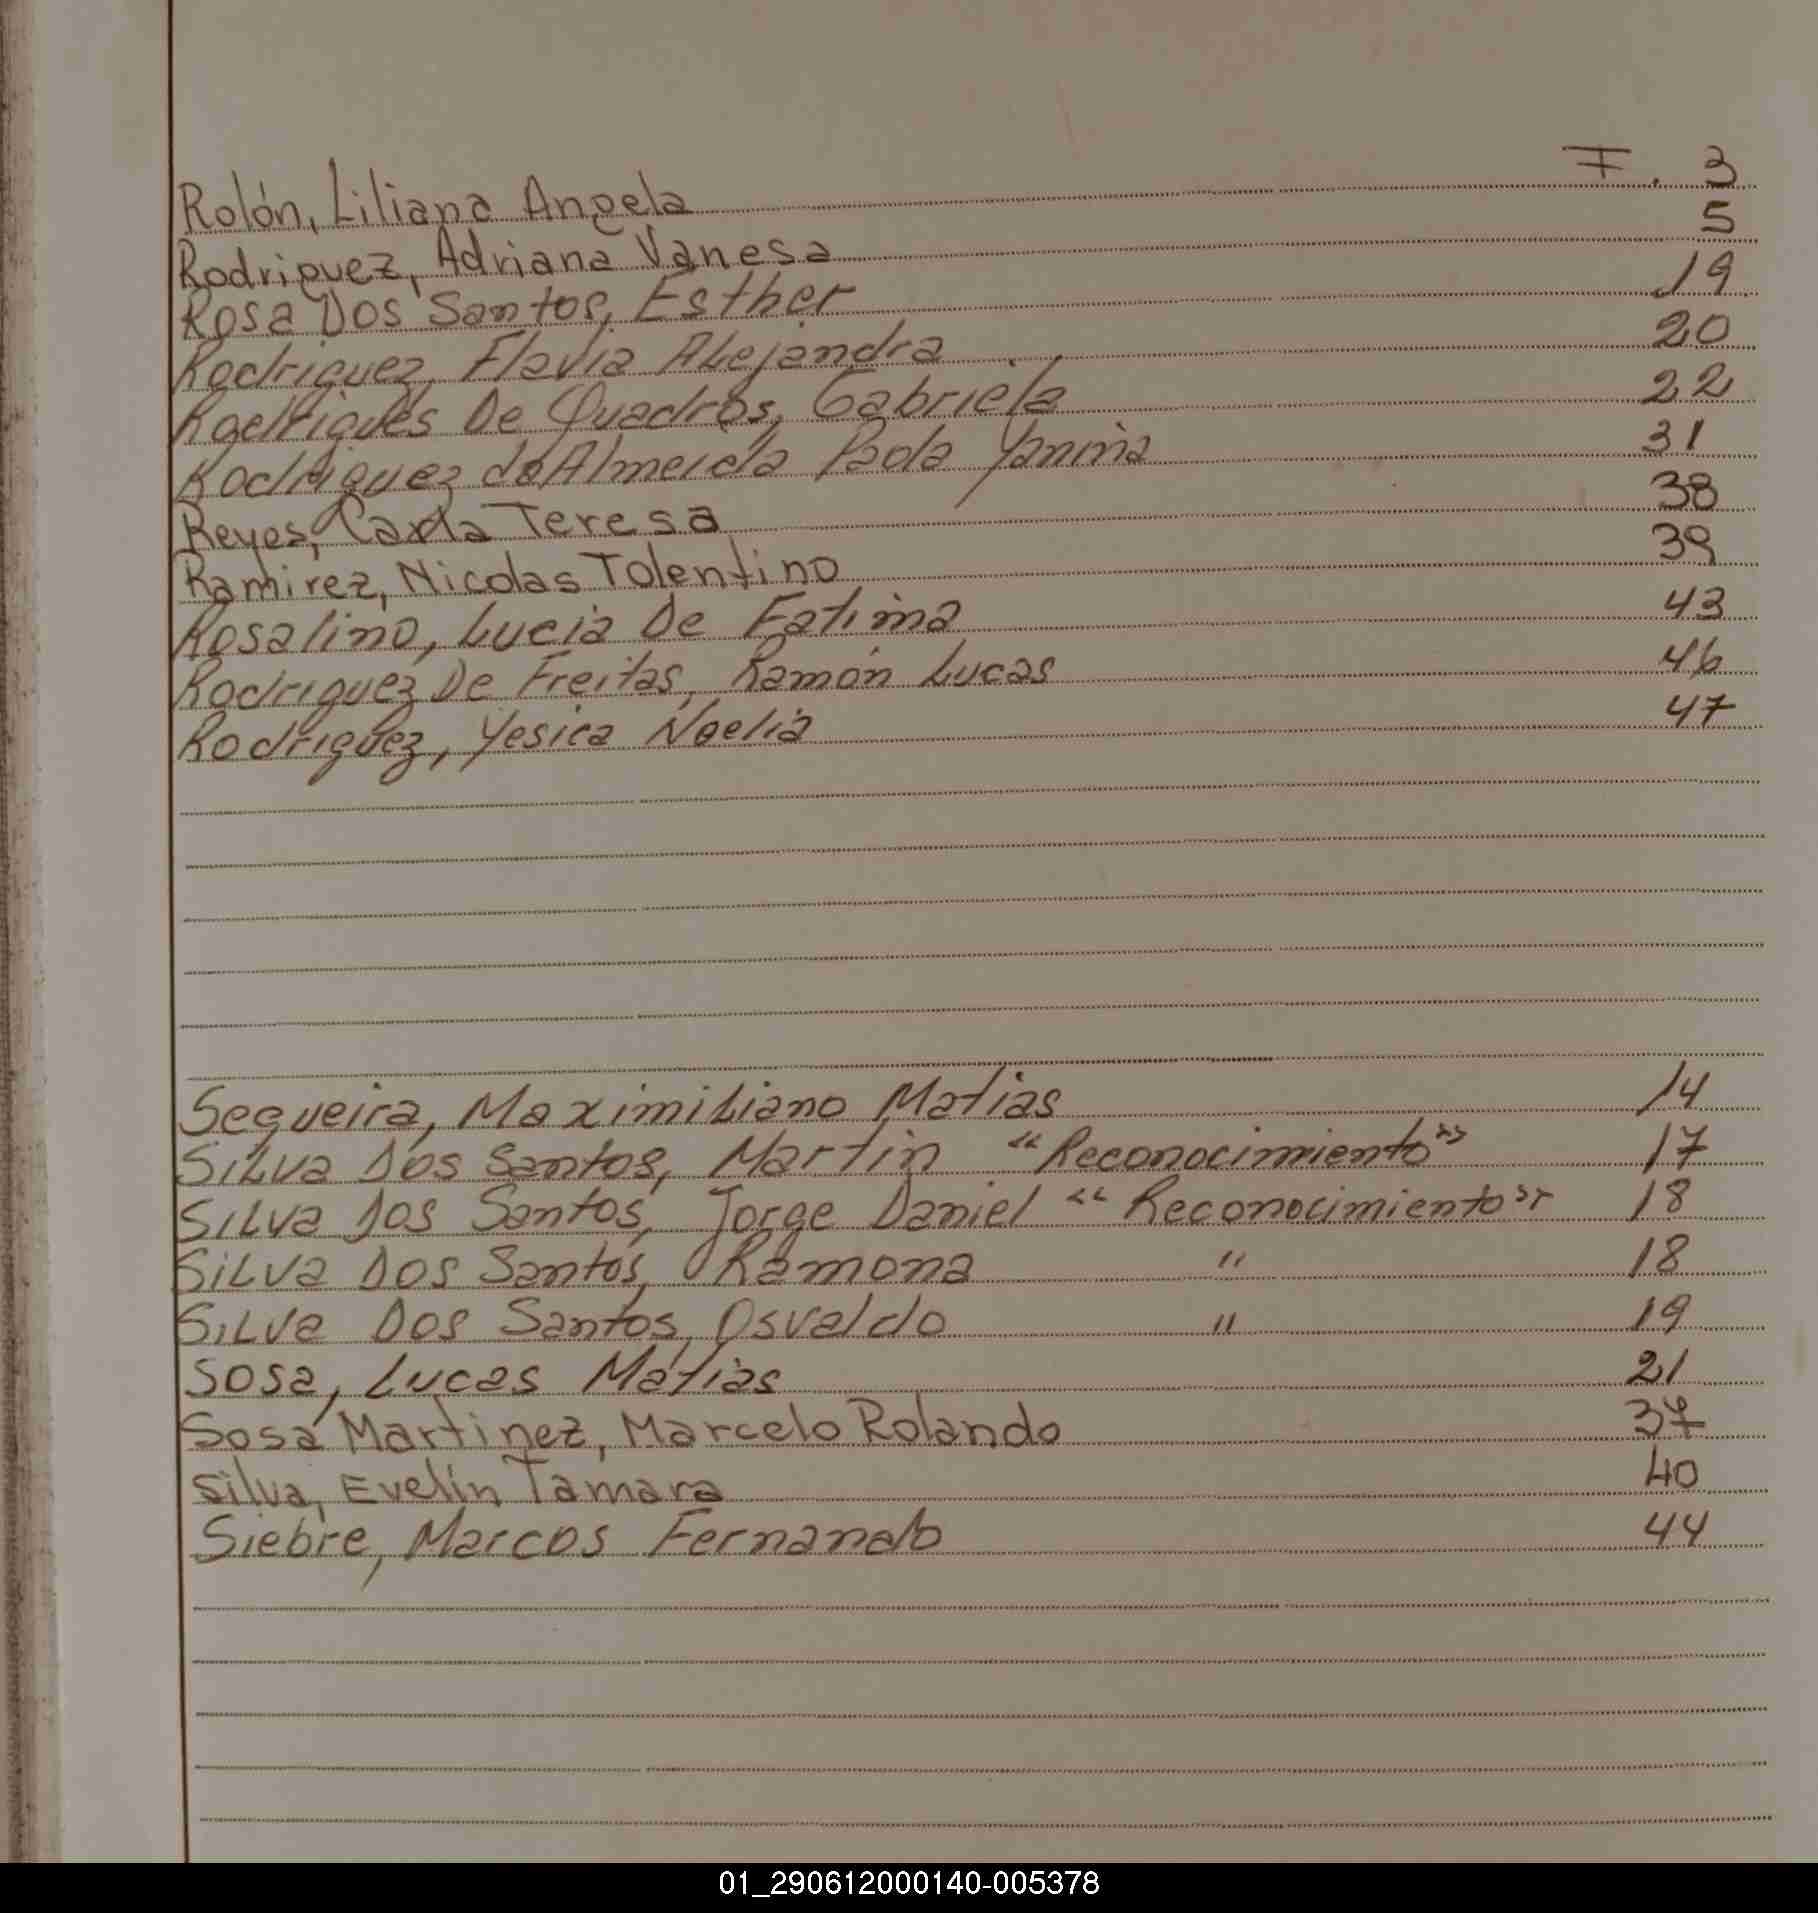 Rolón, Liliana Angela F. 3
Rodriguez, Adriana Vanesa 5
Rosa Dos Santos, Esther 19
Rodriguez, Flavia Alejandra 20
Rodrigues De Quadros, Gabriela 22
Rodriguez de Almeida Paola Yanina 31
Reyes, Carla Teresa 38
Ramirez, Nicolas Tolentino 39
Rosalino, Lucia De Fatima 43
Rodriguez De Freitas, Ramón Lucas 46
Rodriguez, Yesica Noelia 47
Segueira, Maximiliano Matias 14
Silva Dos Santos, Martin "Reconocimiento" 17
Silva Dos Santos, Jorge Daniel "Reconocimiento" 18
Silva Dos Santos, Ramona " 18
Silva Dos Santos, Osvaldo " 19
Sosa, Lucas Matias 21
Sosa Martinez, Marcelo Rolando 37
Silva, Evelin Tamara 40
Siebre, Marcos Fernando 44
01_290612000140-005378